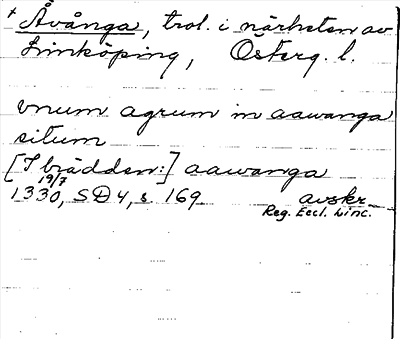 + Åvånga, trol. i närheten av
Linköping, Österg. l.
vnum agrum in aawanga
situm
[I brädden:] aawanga
19/7
1330, SD 4, s. 169 avskr.
Reg. Eccl. Linc.